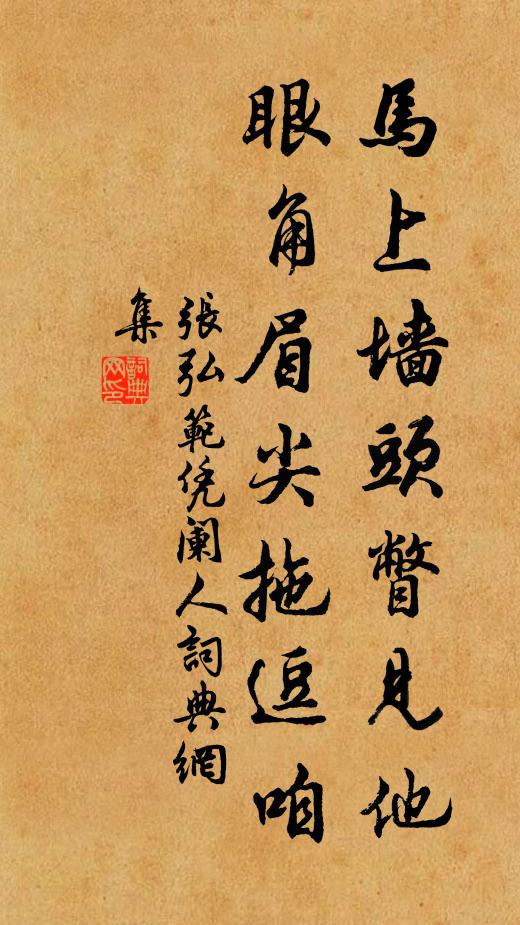 馬上墻頭瞥見他
眼角眉尖拖逗咱
張弘範凭闌人詞典網
集
詞典网印